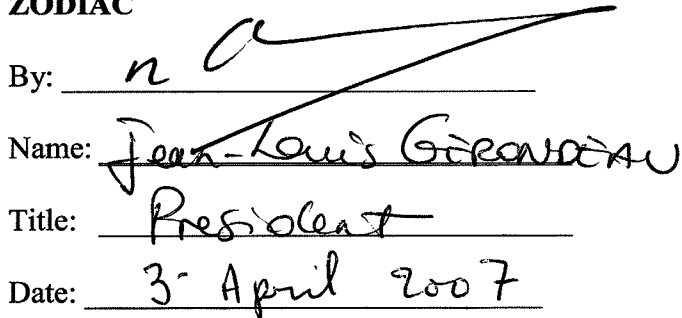 ZODIAC
By:
Name: Jean-Louis GERONDEAU
Title: President
Date: 3 April 2007